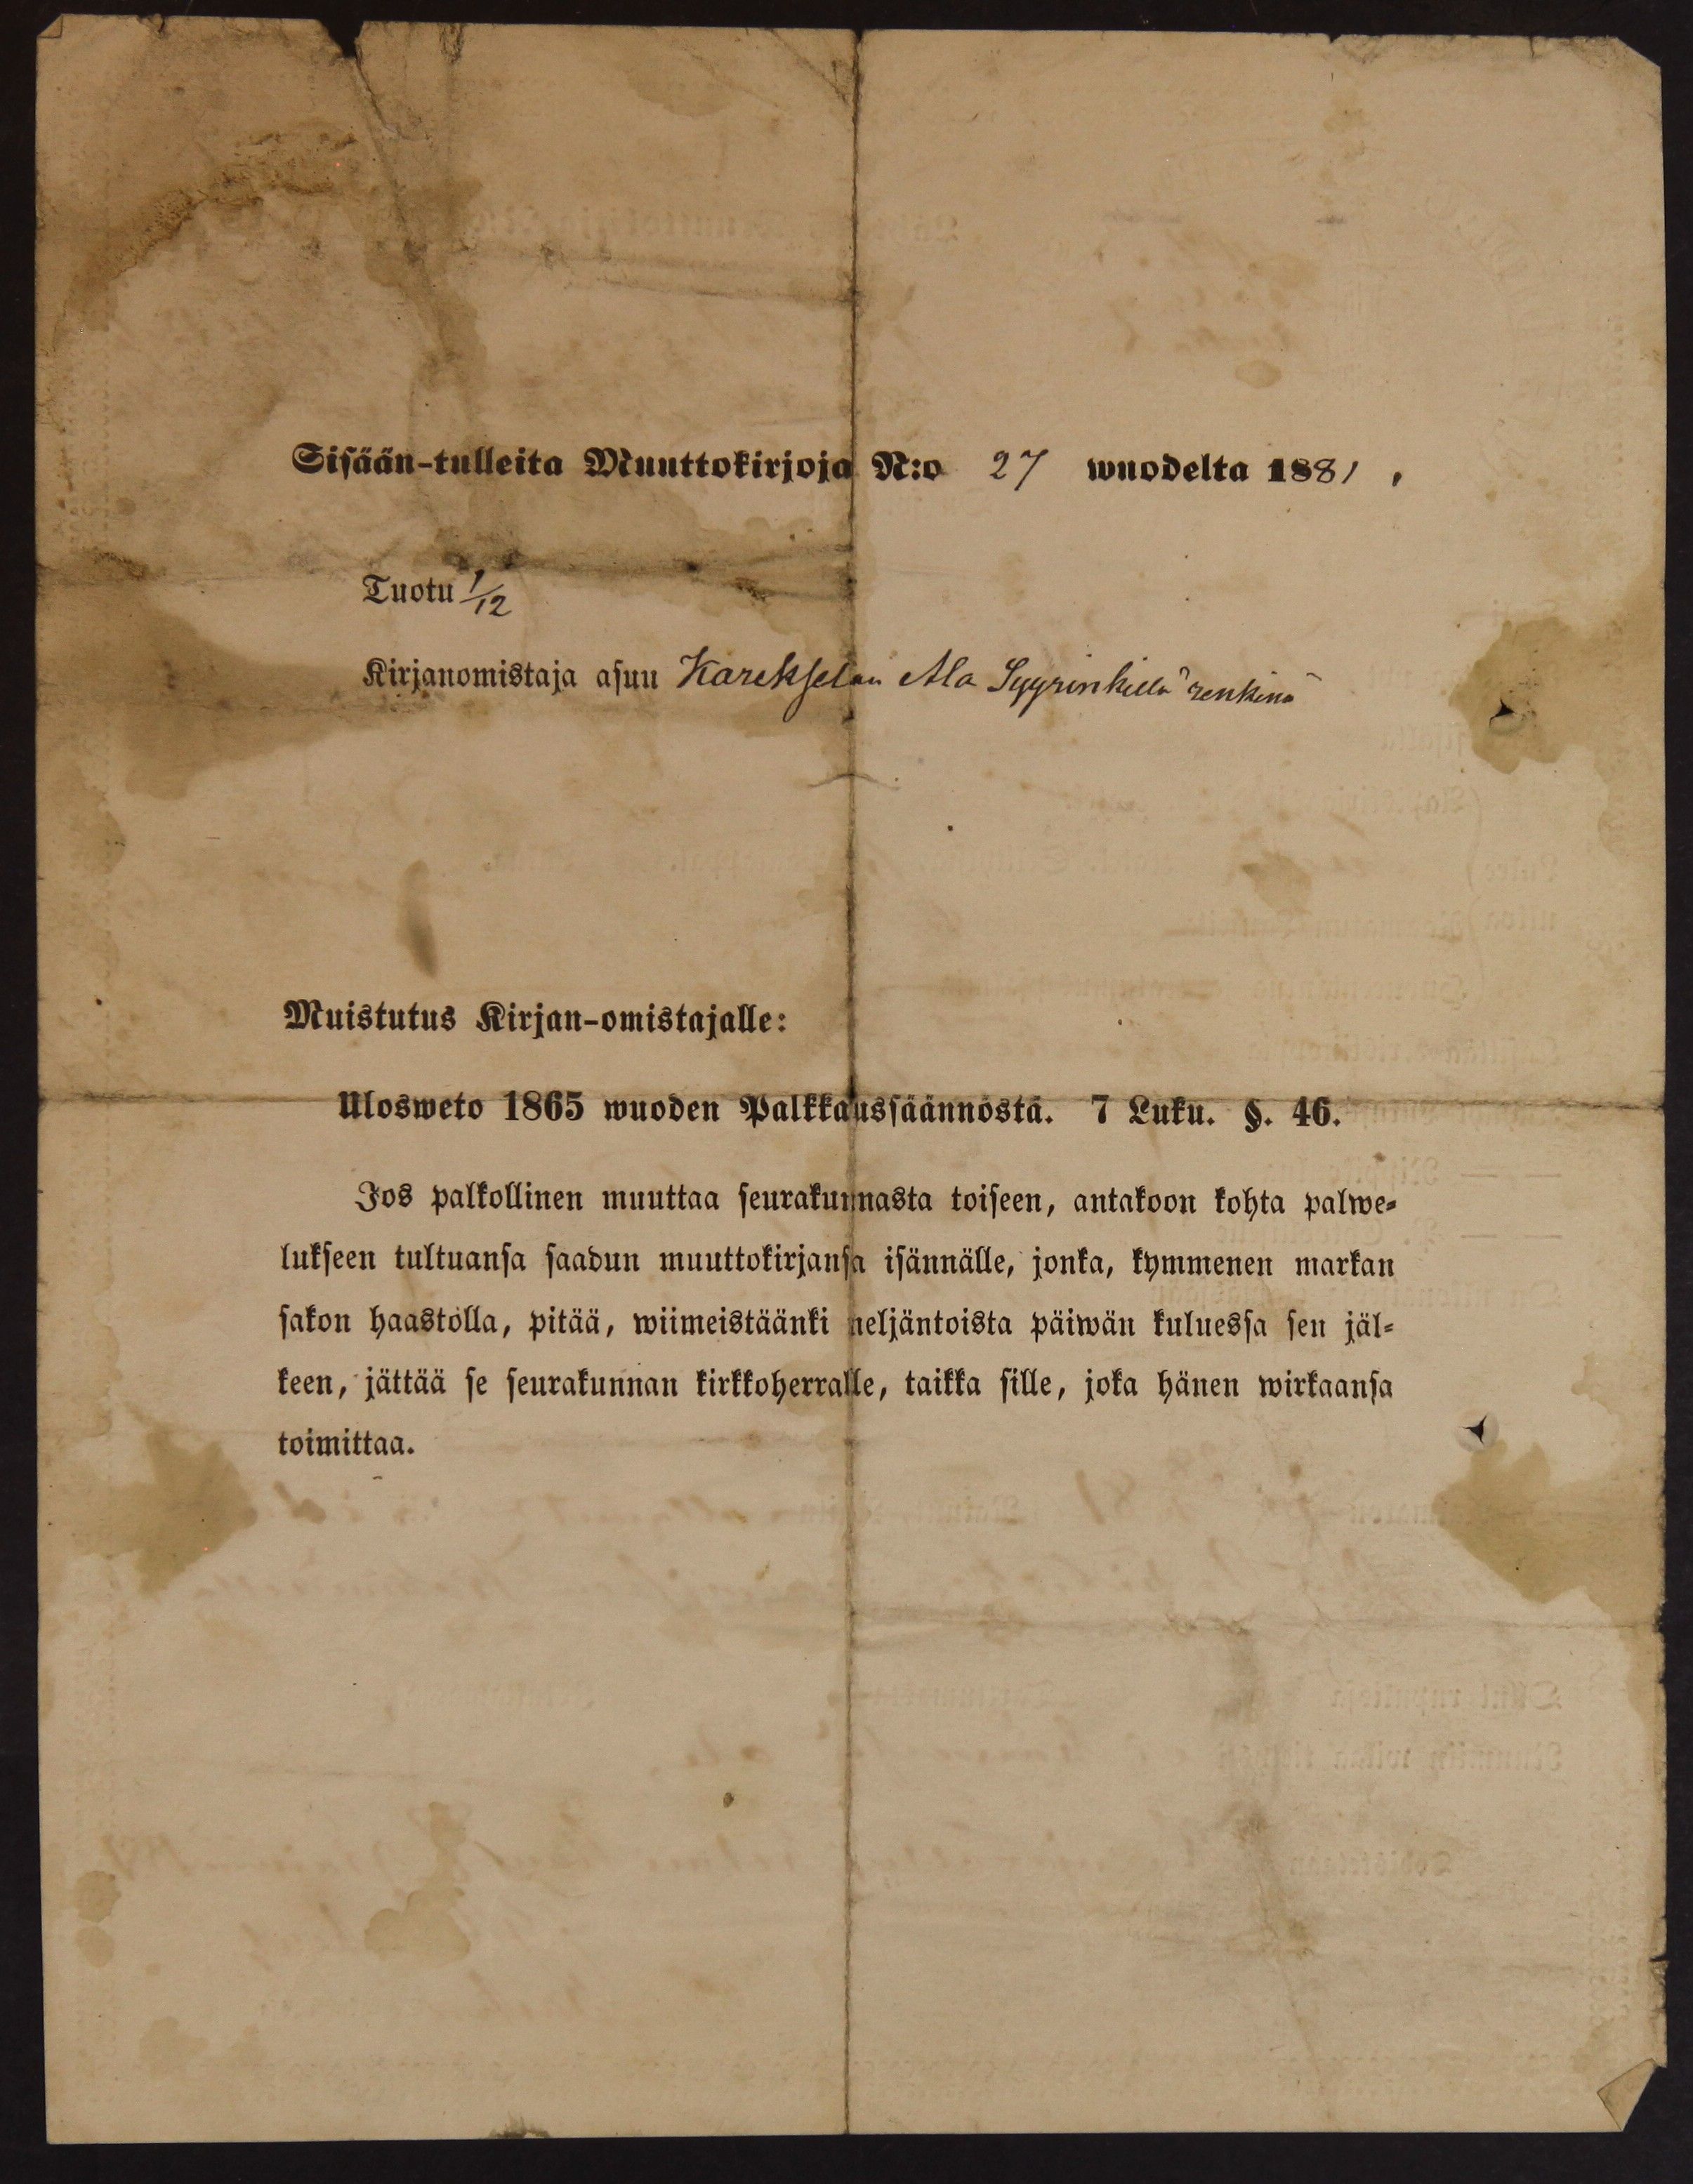 Sisään-tulleita Muuttokirjoja N:o 27 wuodelta 1881,
Tuotu 1/12
Kirjanomistaja asuu Karekselan Ala Syyrinkillä renkinä
Muistutus Kirjan-omistajalle:
Ulosweto 1865 wuoden Palkkaussäännöstä. 7 Luku. §. 46.
Jos palkollinen muuttaa seurakunnasta toiseen, antakoon kohta palwe-
lukseen tultuansa saadun muuttokirjansa isännälle, jonka, kymmenen markan
sakon haastolla, pitää, wiimeistäänki neljäntoista päiwän kuluessa sen jäl-
keen, jättää se seurakunnan kirkkoherralle, taikka sille, joka hänen wirkaansa
toimittaa.